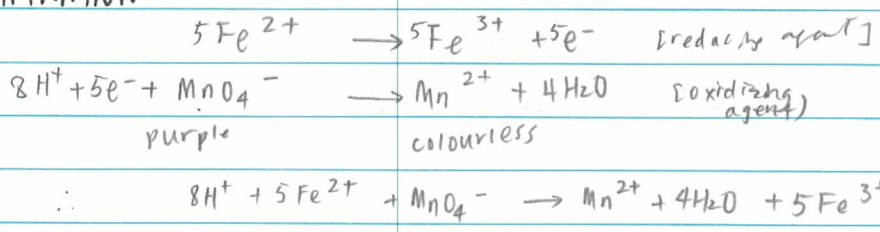 5Fe²⁺ → 5Fe³⁺ + 5e⁻ [reducing agent]
8H⁺ + 5e⁻ + MnO₄⁻ → Mn²⁺ + 4H₂O [oxidizing agent)
purple colourless
∴ 8H⁺ + 5Fe²⁺ + MnO₄⁻ → Mn²⁺ + 4H₂O + 5Fe³⁺